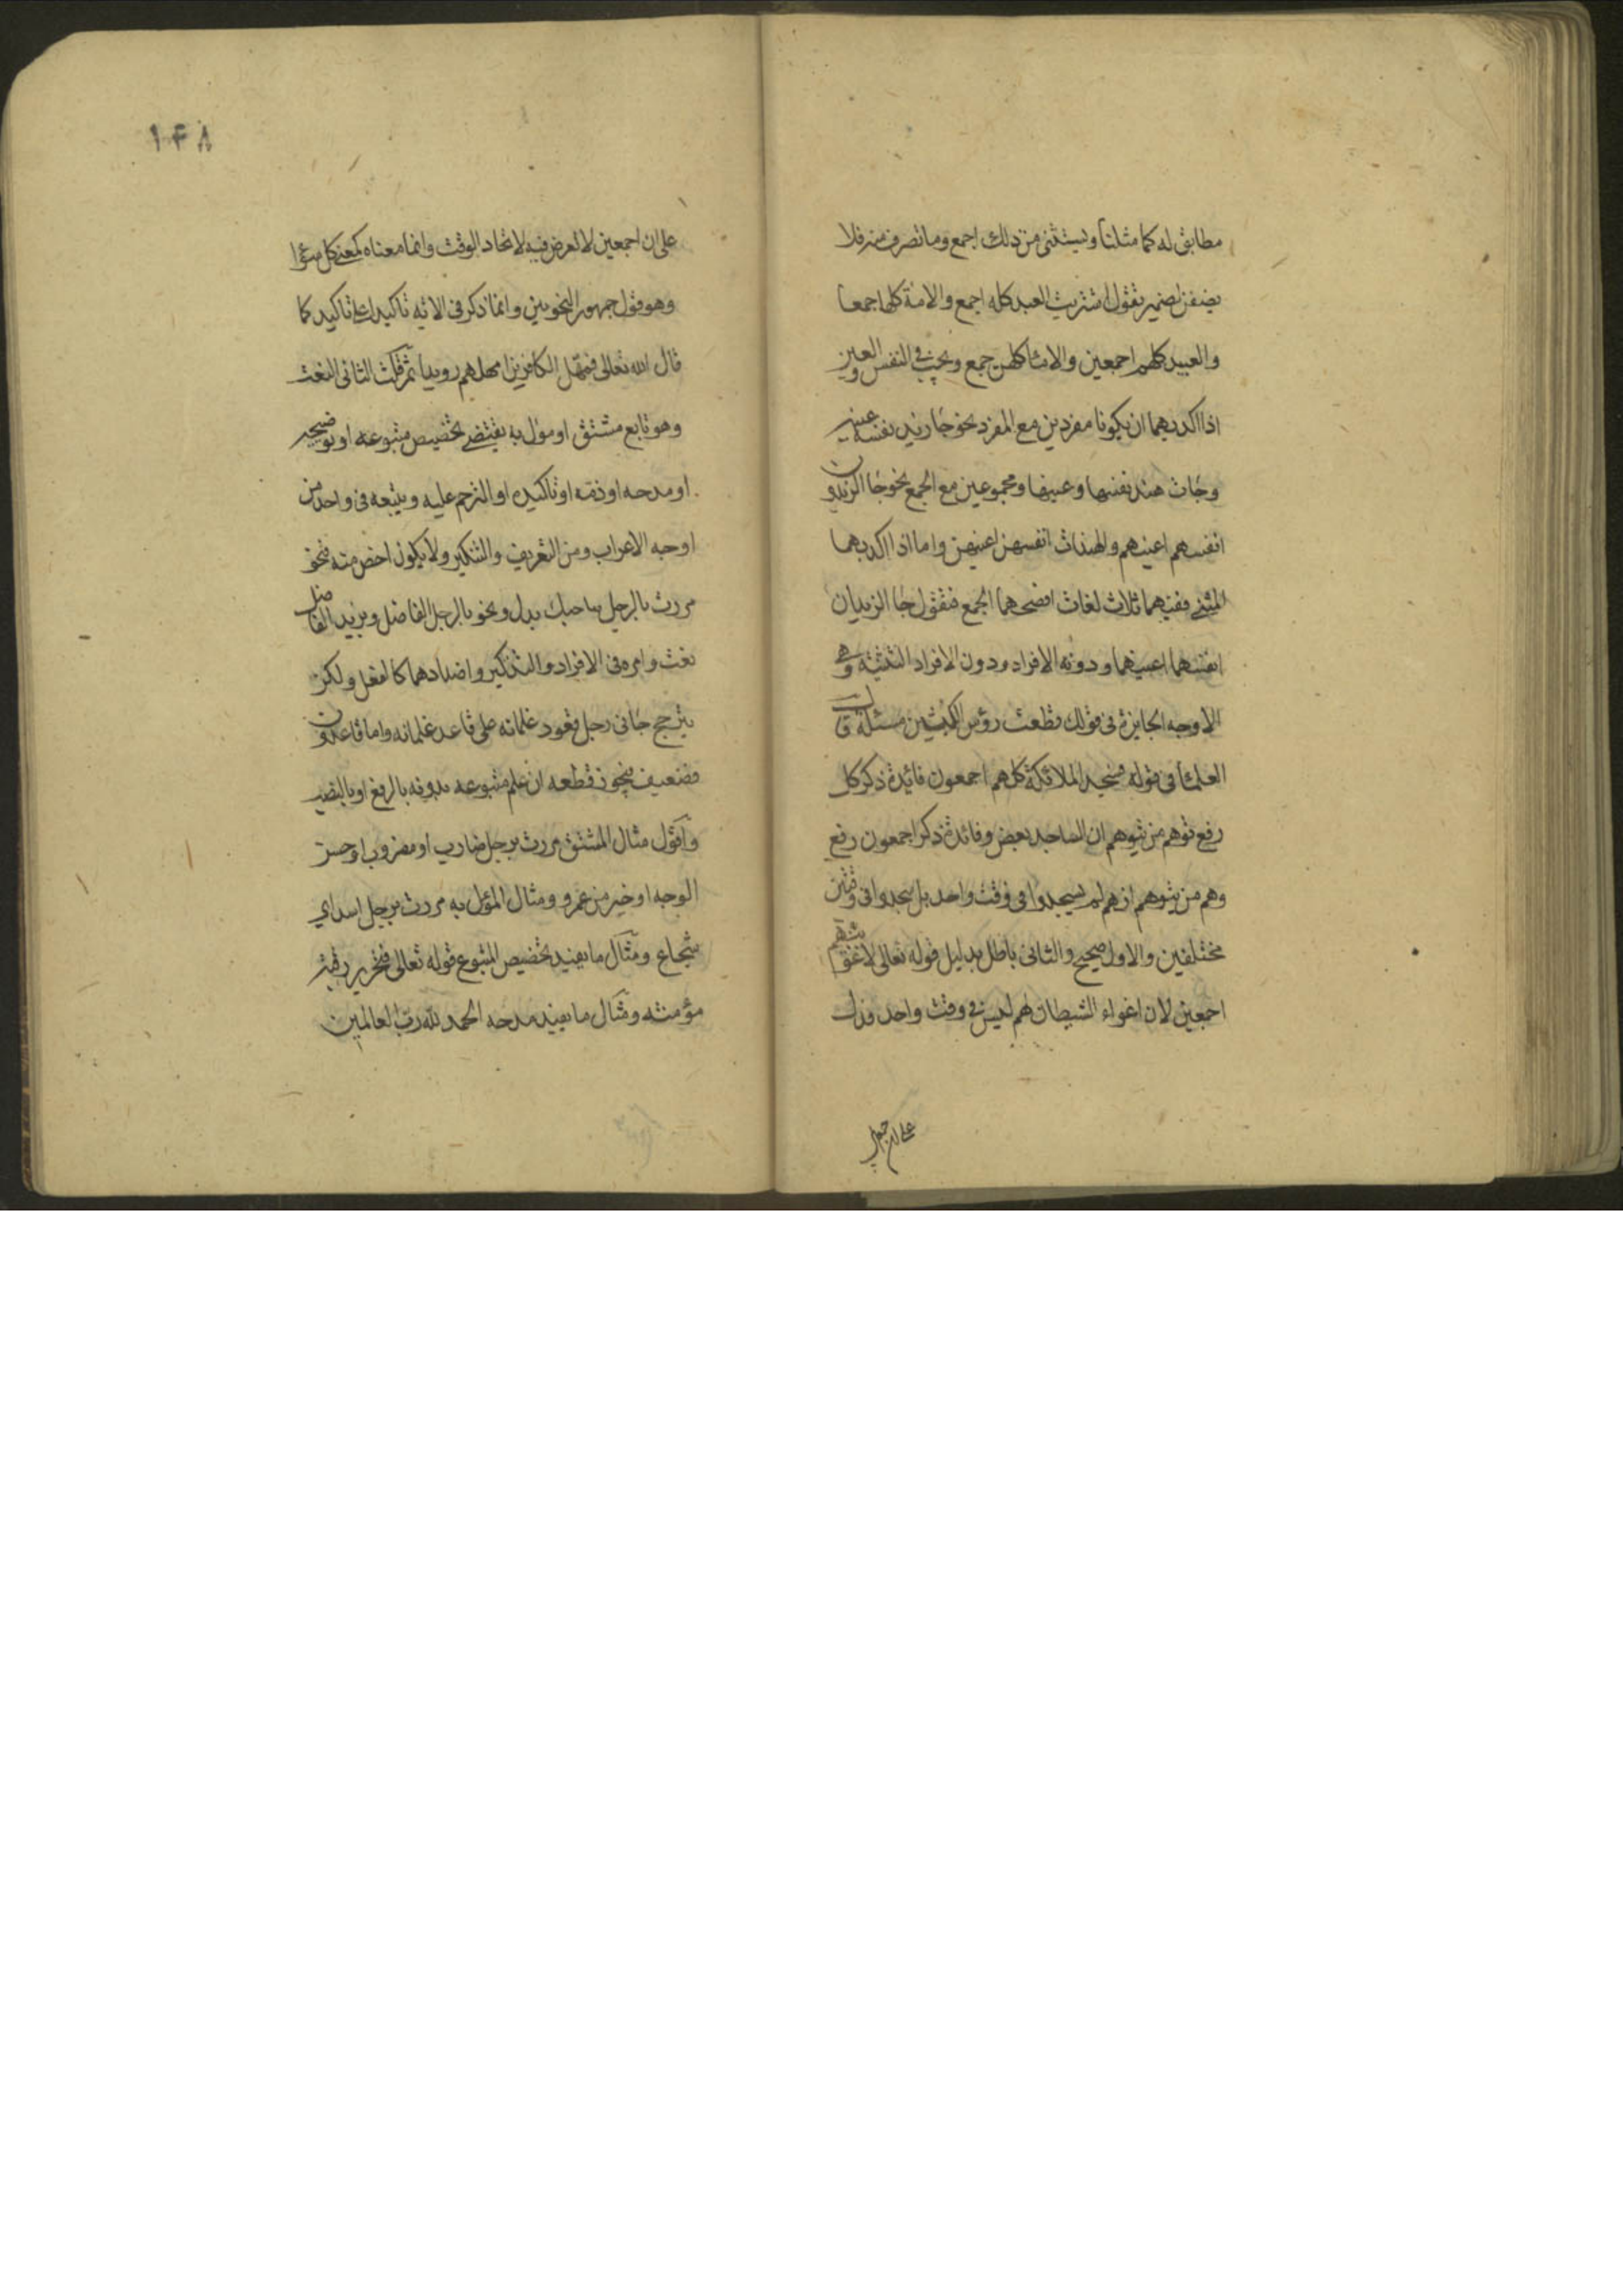 مطابق له كما مثلنا ويستثنى من ذلك اجمع وما تصرف منه فلا
يضف لضمير تقول اشتريت العبد كله اجمع والامة كلها جمعا
والعبيد كلهم اجمعين والاما كلهن جمع ويجب في النفس والعين
اذا اكد بهما ان يكونا مفردين مع المفرد نحو جا زيد نفسه عينه
وجات هند نفسها وعينها ومجموعين مع الجمع نحو جا الزيدون
انفسهم اعينهم والهندات انفسهن اعينهن واما اذا اكد بهما
المثنى ففيهما ثلاث لغات افصحهما الجمع فتقول جا الزيدان
انفسهما اعينهما ودونه الافراد ودون الافراد التثنية وهي
الاوجه الجايزة في قولك قطعت رؤس الكبشين مسئلة قال
العلما في قوله فسجد الملائكة كلهم اجمعون فائدة ذكر كل
رفع توهم من يتوهم ان الساجد بعض وفائدة ذكر اجمعون رفع
وهم من يتوهم انهم لم يسجدوا في وقت واحد بل سجدوا في وقتين
مختلفين والاول صحيح والثاني باطل بدليل قوله تعالى لاغوينهم
اجمعين لان اغواء الشيطان لهم ليس في وقت واحد فدل
۱۴۸
على ان اجمعين لا تعرض فيه لاتحاد الوقت وانما معناه كمعنى كل سوا
وهو قول جمهور النحويين وانما ذكر في الاية تاكيدا على تاكيد كما
قال الله تعالى فمهل الكافرين امهلهم رويدا ثم قلت الثاني النعت
وهو تابع مشتق او مول به يقتضي تخصيص متبوعه او توضيحه
او مدحه او ذمه او تاكيده او الترحم عليه ويتبعه في واحد من
اوجه الاعراب ومن التعريف والتنكير ولا يكون اخص منه فنحو
مررت بالرجل صاحبك بدل ونحو بالرجل الفاضل وبزيد الفاضل
نعت وامره في الافراد والتذكير واضدادهما كالفعل ولكن
يترجح جاني رجل قعود غلمانه على قاعد غلمانه واما قاعدون
فضعيف فيجوز قطعه ان علم متبوعه بدونه بالرفع او بالنصب
واقول مثال المشتق مررت برجل ضارب او مضروب او حسن
الوجه او خير من عمرو ومثال المؤل به مررت برجل اسد اي
شجاع ومثال ما يفيد تخصيص المتبوع قوله تعالى فتحرير رقبة
مؤمنته ومثال ما يفيد مدحه الحمد لله رب العالمين